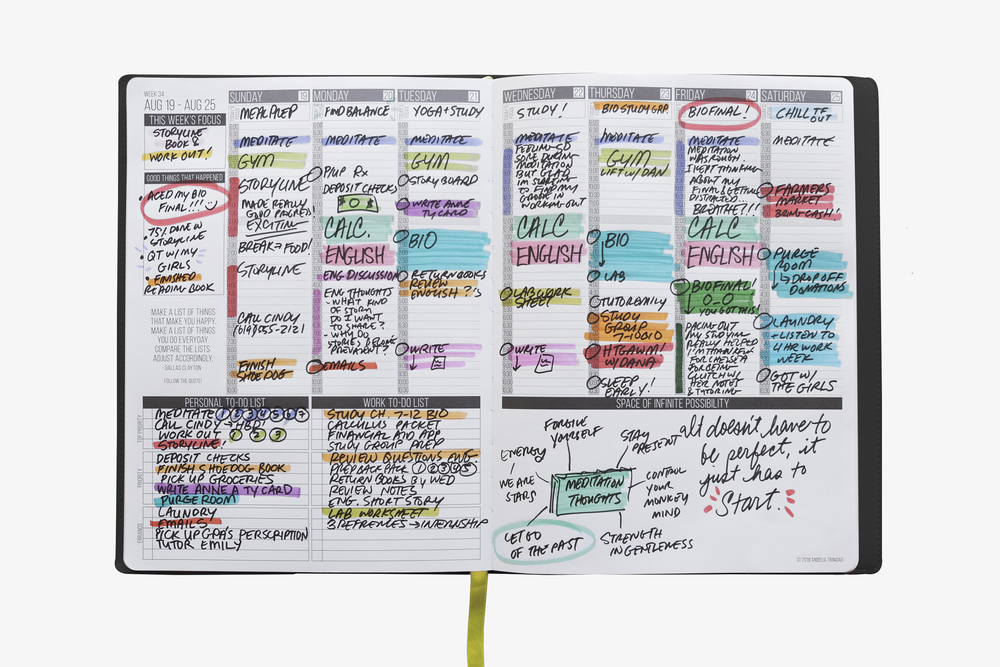 WEEK 34
AUG 19 - AUG 25
THIS WEEK'S FOCUS
STORYLINE
BOOK &
WORK OUT!
GOOD THINGS THAT HAPPENED
ACED MY BIO
FINAL!!!
75% DONE W
STORYLINE
QT W/ MY
GIRLS
FINISHED
READING BOOK
MAKE A LIST OF THINGS
THAT MAKE YOU HAPPY.
MAKE A LIST OF THINGS
YOU DO EVERYDAY.
COMPARE THE LISTS.
ADJUST ACCORDINGLY.
- DALLAS CLAYTON
FOLLOW THE QUOTE!
SUNDAY 19
MEAL PREP
MEDITATE
GYM
STORYLINE
MADE REALLY
GOOD PROGRESS!
EXCITING
BREAK = FOOD!
STORYLINE
CALL CINDY
(619)555-2121
FINISH
SHOE DOG
MONDAY 20
FIND BALANCE
MEDITATE
PICK UP RX
DEPOSIT CHECKS
CALC.
ENGLISH
ENG DISCUSSION
ENG THOUGHTS
- WHAT KIND
OF STORY
DO I WANT
TO SHARE?
- WHY DO
STORIES BECOME
EMAILS
TUESDAY 21
YOGA + STUDY
MEDITATE
GYM
STORY BOARD
WRITE ANNE
TY CARD
BIO
RETURN BOOKS
REVIEW
ENGLISH ?'S
WRITE
WEDNESDAY 22
STUDY!
MEDITATE
FEELING SO
SORE DURING
MEDITATION
BUT GLAD
I'M STARTING
TO FIND MY
GROOVE IN
WORKING OUT
CALC
ENGLISH
LAB WORK
SHEET
WRITE
THURSDAY 23
BIO STUDY GRP.
MEDITATE
GYM
LIFT W/ DAN
BIO
LAB
TUTOR EMILY
STUDY
GROUP
7-10
HTGAWM!
W/ DANA
SLEEP
EARLY!
FRIDAY 24
BIO FINAL!
MEDITATE
MEDITATION
WAS ROUGH.
I KEPT THINKING
ABOUT MY
FINAL & GETTING
DISTRACTED...
BREATHE!!!
CALC
ENGLISH
BIO FINAL!
YOU GOT THIS!
PACING OUT
MY STUDYING
REALLY HELPED
I'M THANKFUL
FOR CHELSEA
FOR BEING
CLUTCH W/
HER NOTES
& TUTORING
SATURDAY 25
CHILL TF
OUT
MEDITATE
FARMERS
MARKET
BRING CASH!
PURGE
ROOM
DROP OFF
DONATIONS
LAUNDRY
+ LISTEN TO
4 HR WORK
WEEK
GOT W/
THE GIRLS
PERSONAL TO-DO LIST
TOP PRIORITY
MEDITATE 1 2 3 4 5 6 7
CALL CINDY → HBD!
WORK OUT 1 2 3
STORYLINE!
PRIORITY
DEPOSIT CHECKS
FINISH SHOEDOG BOOK
PICK UP GROCERIES
WRITE ANNE A TY CARD
PURGE ROOM
LAUNDRY
ERRANDS
EMAILS!
PICK UP GPA'S PERSCRIPTION
TUTOR EMILY
WORK TO-DO LIST
STUDY CH. 7-12 BIO
CALCULUS PACKET
FINANCIAL AID APP
STUDY GROUP PREP
REVIEW QUESTIONS ENG
PREP BACK PACK 1 2 3 4 5
RETURN BOOKS BY WED
REVIEW NOTES
ENG. SHORT STORY
LAB WORKSHEET
3 REFRENCES → INTERNSHIP
SPACE OF INFINITE POSSIBILITY
FORGIVE
YOURSELF
STAY
PRESENT
ENERGY
WE ARE
STARS
MEDITATION
THOUGHTS
CONTROL
YOUR
MONKEY
MIND
LET GO
OF THE PAST
STRENGTH
IN GENTLENESS
It doesn't have to
be perfect, it
just has to
"Start."
© 2018 ANGELIA TRINIDAD